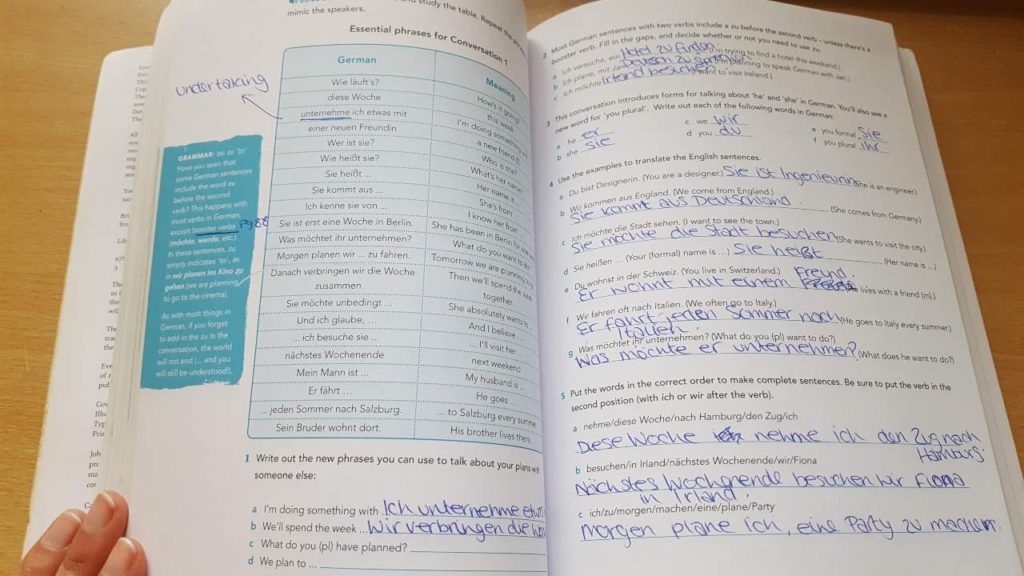 and study the table. Repeat the
mimic the speakers.
Essential phrases for Conversation 1
German
Meaning
Wie läuft's?
How's it going?
diese Woche
this week
unternehme ich etwas mit
I'm doing something
einer neuen Freundin
a new friend
Wer ist sie?
Who is she?
Wie heißt sie?
What's her name?
Sie heißt ...
Her name is
Sie kommt aus ...
She's from
Ich kenne sie von ...
I know her from
Sie ist erst eine Woche in Berlin.
She has been in Berlin for
Was möchtet ihr unternehmen?
What do you want to
Morgen planen wir ... zu fahren.
Tomorrow we are planning
Danach verbringen wir die Woche
zusammen.
Then we'll spend the week
together.
Sie möchte unbedingt ...
She absolutely wants
Und ich glaube, ...
And I believe
... ich besuche sie ...
I'll visit her
nächstes Wochenende
next weekend
Mein Mann ist ...
My husband is ...
Er fährt ...
He goes ...
... jeden Sommer nach Salzburg.
... to Salzburg every summer
Sein Bruder wohnt dort.
His brother lives there
undertaking
GRAMMAR: zu as 'to'
Have you seen that
some German sentences
include the word zu
before the second
verb? This happens with
most verbs in German,
except booster verbs
(möchte, werde, etc.).
In these sentences, zu
simply indicates 'to', as
in wir planen ins Kino zu
gehen (we are planning
to go to the cinema).
As with most things
in German, if you forget
to add in the zu in the
conversation, the world
will not end (... and you
will still be understood!).
Pg 88
1 Write out the new phrases you can use to talk about your plans with
someone else:
a I'm doing something with Ich unternehme
b We'll spend the week ... Wir verbringen die
c What do you (pl) have planned?
d We plan to ...
2 Most German sentences with two verbs include a zu before the second verb – unless there's a
booster verb. Fill in the gaps, and decide whether or not you need to use zu.
a Ich versuche, ein Hotel zu finden. trying to find a hotel this weekend.)
b Ich plane, mit Jan planning to speak German with Jan.)
c Ich möchte Irland besuchen. want to visit Ireland.)
3 This conversation introduces forms for talking about 'he' and 'she' in German. You'll also see a
new word for 'you plural'. Write out each of the following words in German:
a he er
b she sie
c we wir
d you du
e you formal Sie
f you plural ihr
4 Use the examples to translate the English sentences.
a Du bist Designerin. (You are a designer.) Sie ist Ingenieurin (She is an engineer.)
b Wir kommen aus England. (We come from England.)
Sie kommt aus Deutschland. (She comes from Germany.)
c Ich möchte die Stadt sehen. (I want to see the town.)
Sie möchte die Stadt besuchen (She wants to visit the city.)
d Sie heißen ... (Your (formal) name is ...) Sie heißt (Her name is ...)
e Du wohnst in der Schweiz. (You live in Switzerland.) Freund.
Er wohnt mit einem (He lives with a friend (m).)
f Wir fahren oft nach Italien. (We often go to Italy.)
Er fährt jeden Sommer nach (He goes to Italy every summer.)
Italien.
g Was möchtet ihr unternehmen? (What do you (pl) want to do?)
Was möchte er unternehmen? (What does he want to do?)
5 Put the words in the correct order to make complete sentences. Be sure to put the verb in the
second position (with ich or wir after the verb).
a nehme/diese Woche/nach Hamburg/den Zug/ich
Diese Woche nehme ich den Zug nach
Hamburg.
b besuchen/in Irland/nächstes Wochenende/wir/Fiona
Nächstes Wochenende besuchen wir Fiona
in Irland.
c ich/zu/morgen/machen/eine/plane/Party
Morgen plane ich, eine Party zu machen.